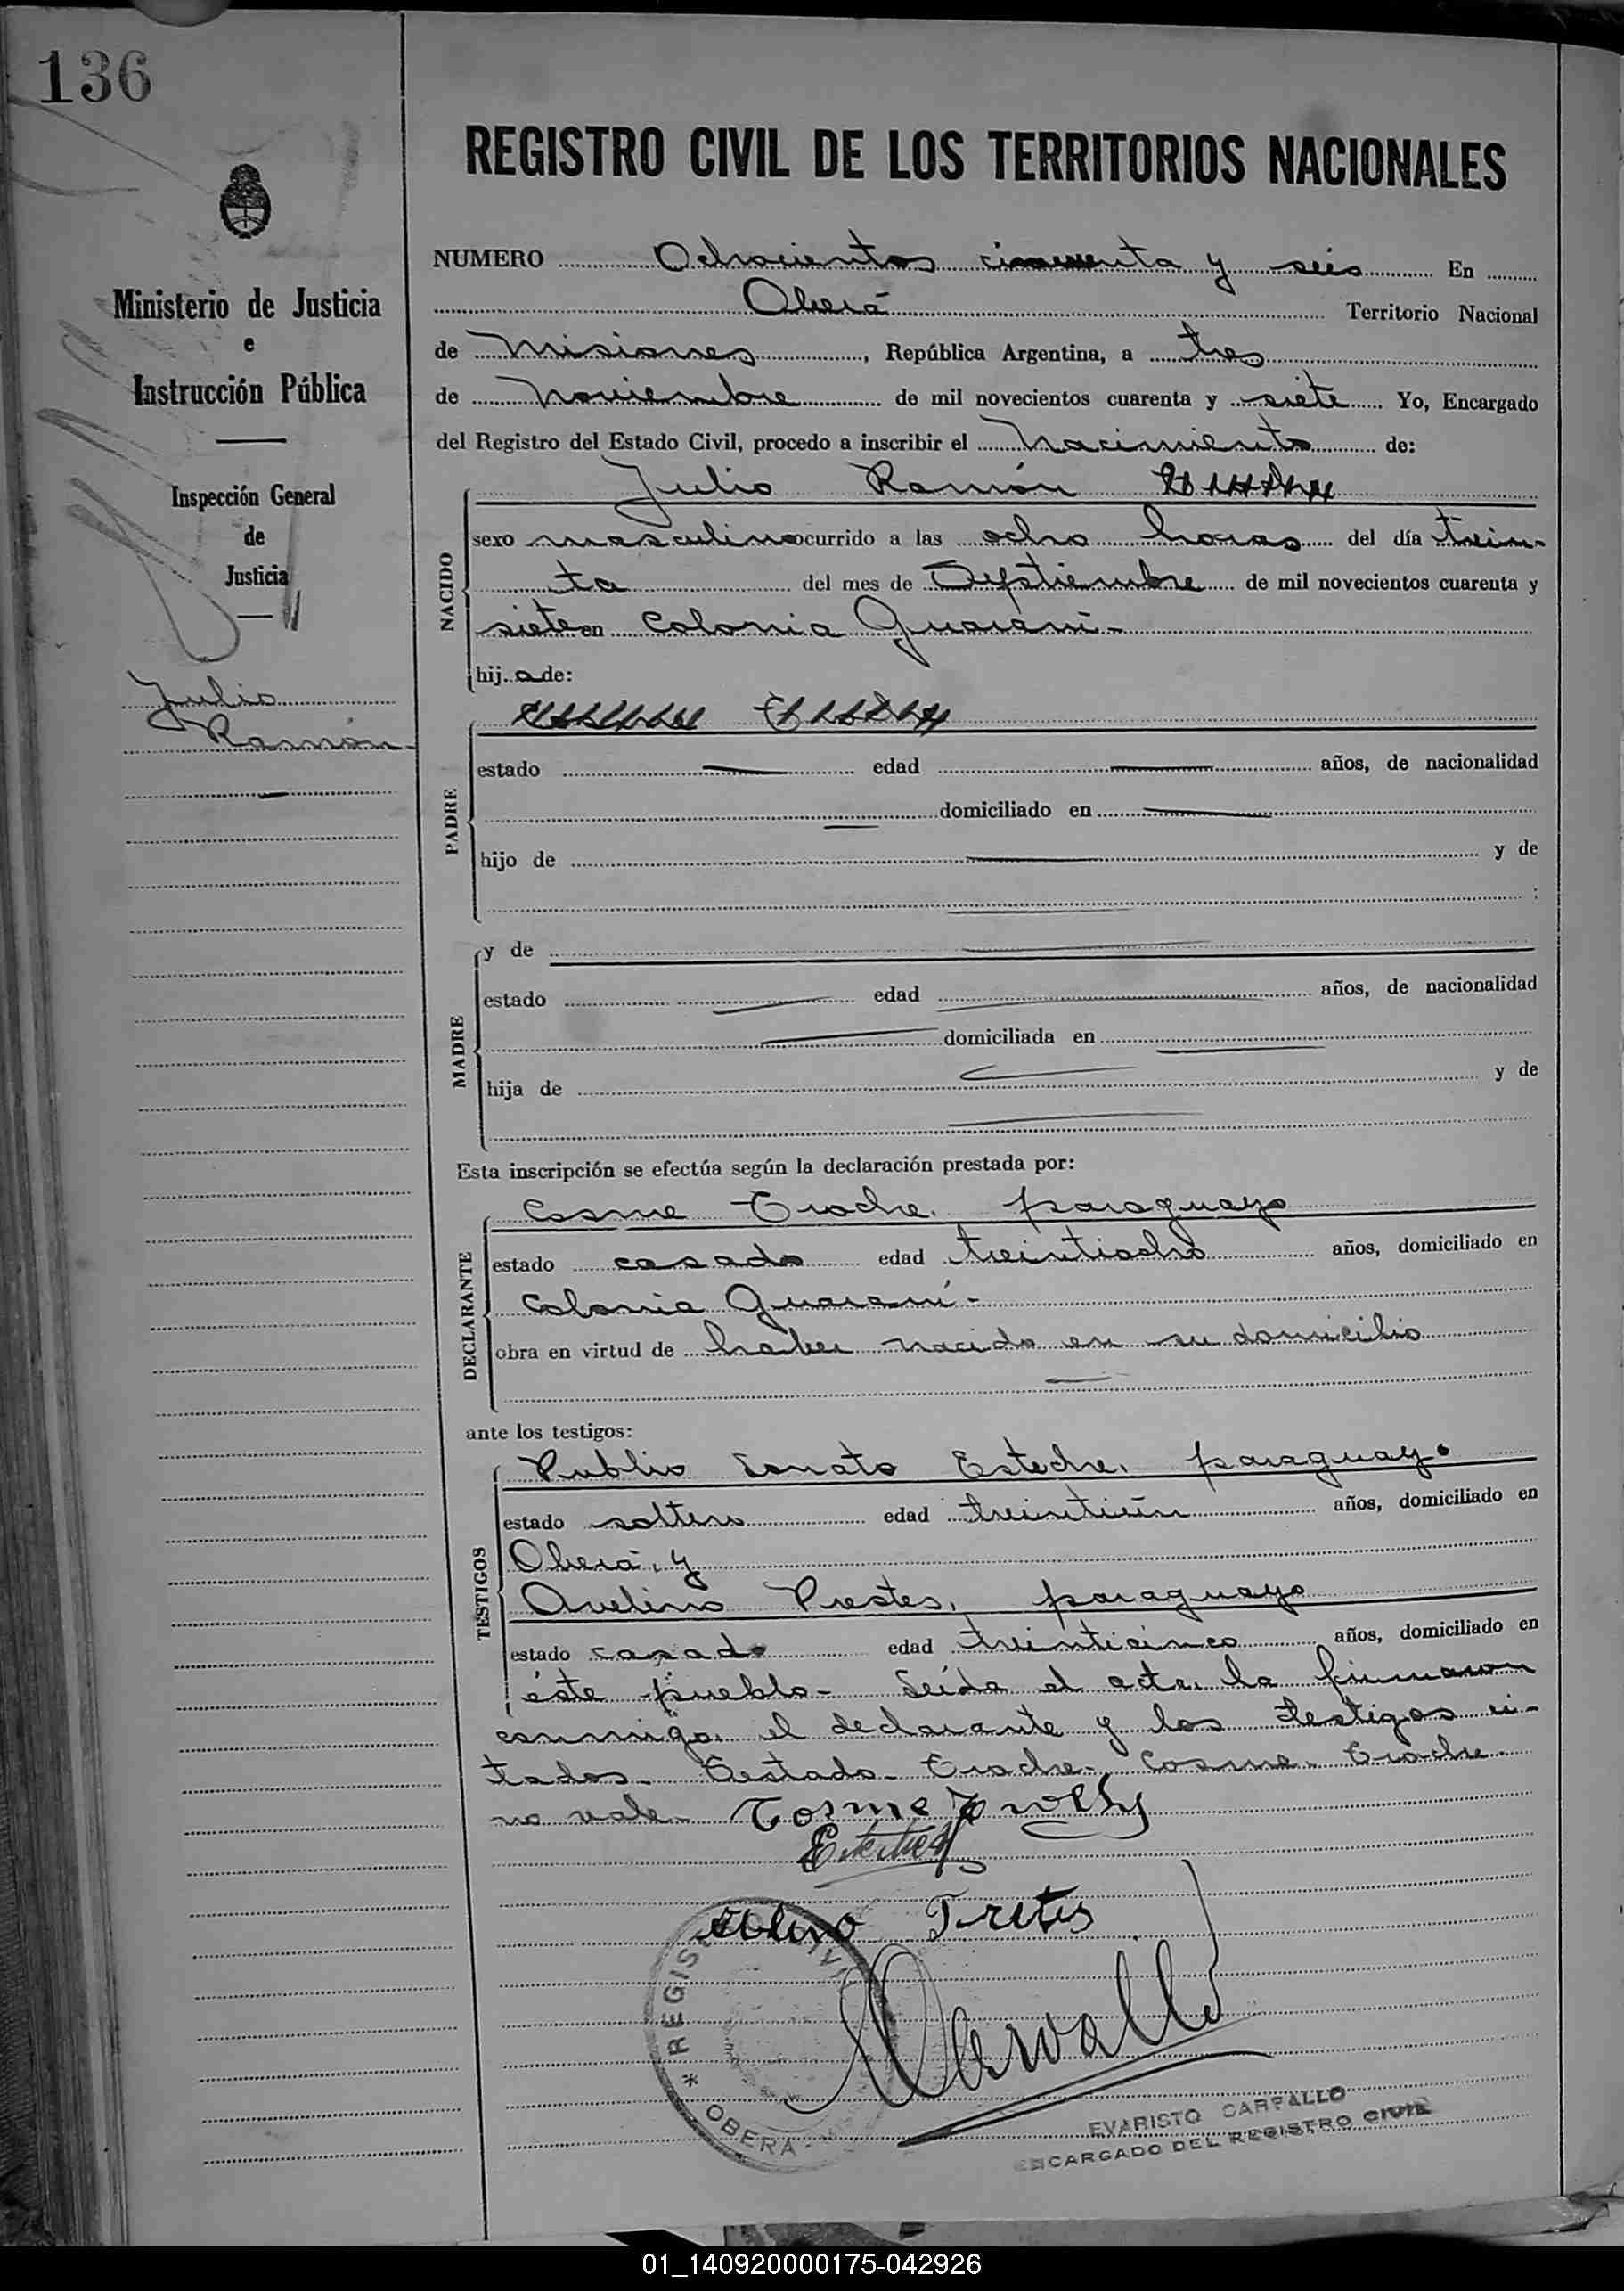 136
REGISTRO CIVIL DE LOS TERRITORIOS NACIONALES
Ministerio de Justicia
e
Instrucción Pública
Inspección General
de
Justicia
Julio
Ramón
NUMERO Ochocientos cincuenta y seis En
Oberá Territorio Nacional
de Misiones, República Argentina, a tres
de Noviembre de mil novecientos cuarenta y siete Yo, Encargado
del Registro del Estado Civil, procedo a inscribir el Nacimiento de:
Julio Ramón
NACIDO
sexo masculino ocurrido a las ocho horas del día trein-
ta del mes de Septiembre de mil novecientos cuarenta y
siete en Colonia Guaraní-
hijo de:
PADRE
estado edad años, de nacionalidad
domiciliado en
hijo de y de
MADRE
y de
estado edad años, de nacionalidad
domiciliada en
hija de y de
Esta inscripción se efectúa según la declaración prestada por:
DECLARANTE
Cosme Troche, paraguayo
estado casado edad treintiocho años, domiciliado en
Colonia Guaraní-
obra en virtud de haber nacido en su domicilio
ante los testigos:
TESTIGOS
Publio Esteche, paraguayo
estado soltero edad treintiún años, domiciliado en
Oberá, y
Avelino Prestes, paraguayo
estado casado edad treinticinco años, domiciliado en
éste pueblo- Leída el acta, la firmaron
conmigo, el declarante y los testigos ci-
tados- Testado- Troche- Cosme- Troche-
no vale- Cosme
REGISTRO CIVIL
* OBERÁ -
EVARISTO CARVALLO
ENCARGADO DEL REGISTRO CIVIL
01_140920000175-042926